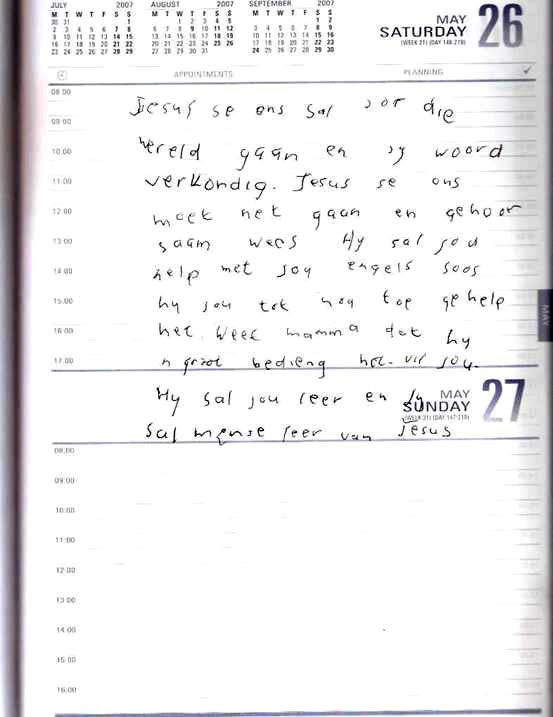 JULY 2007 AUGUST 2007 SEPTEMBER 2007
M T W T F S S M T W T F S S M T W T F S S
30 31 1 1 2 3 4 5 1 2
2 3 4 5 6 7 8 6 7 8 9 10 11 12 3 4 5 6 7 8 9
9 10 11 12 13 14 15 13 14 15 16 17 18 19 10 11 12 13 14 15 16
16 17 18 19 20 21 22 20 21 22 23 24 25 26 17 18 19 20 21 22 23
23 24 25 26 27 28 29 27 28 29 30 31 24 25 26 27 28 29 30
MAY 26
SATURDAY
(WEEK 21) (DAY 146-219)
APPOINTMENTS PLANNING
08:00 Jesus se ons sal die
09:00
10:00 wereld gaan en sy woord
11:00 verkondig. Jesus se ons
12:00 moet net gaan en gehoor
13:00 saam wees Hy sal jou
14:00 help met soy engels soos
15:00 hy jou tot nog toe gehelp
16:00 het. Week mamma dat hy
17:00 n groot bedieng het vir jou.
MAY
MAY 27
Hy sal jou leer en jy
SUNDAY
(WEEK 21) (DAY 147-218)
sal mense leer van Jesus
08:00
09:00
10:00
11:00
12:00
13:00
14:00
15:00
16:00